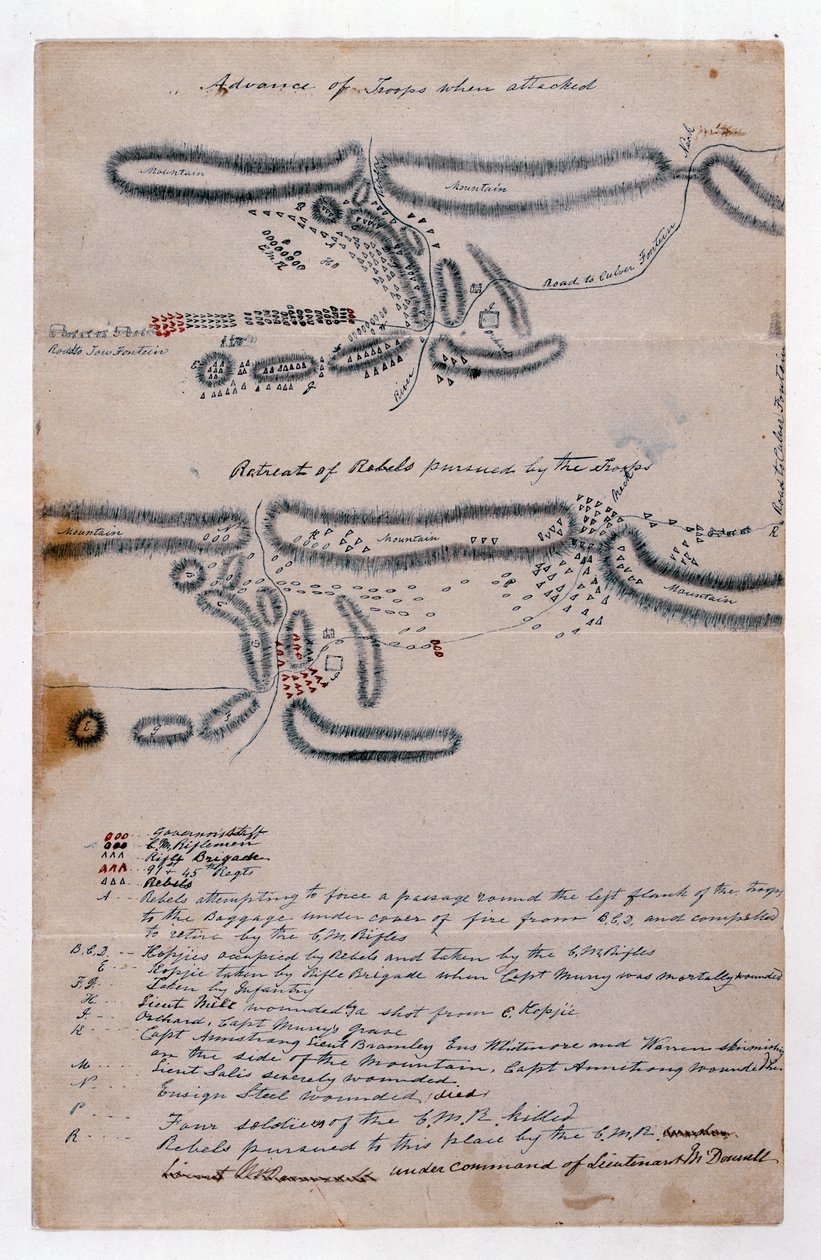 Advance of Troops when attacked
Mountain
Mountain
Neck
River
B
A
H
C.M.R
Road to Culver Fontein
Road to Tow Fontein
E
G
River
Retreat of Rebels pursued by the Troops
Neck
Road to Culver Fontein
Mountain
N
K
Mountain
P
R
Mountain
D
C
B
I
E
G
F
Governor's Staff
C.M. Riflemen
Rifle Brigade
91st & 45th Regts
Rebels
A Rebels attempting to force a passage round the left flank of the troops
to the Baggage under cover of fire from B,C,D, and compelled
to retire by the C.M. Rifles
B.C.D. Kopjies occupied by Rebels and taken by the C.M. Rifles
E Kopjie taken by Rifle Brigade when Capt Murry was mortally wounded
F.G. Taken by Infantry
H Lieut Mill wounded by a shot from E. Kopjie
I Orchard, Capt Murry's grave
K Capt Armstrong Lieut Bramley Ens Whitmore and Warren skirmishing
on the side of the Mountain, Capt Armstrong wounded here
M Lieut Salis severely wounded.
N Ensign Steel wounded, died
P Four soldiers of the C.M.R. killed
R Rebels pursued to this place by the C.M.R.
under command of Lieutenant McDonnell